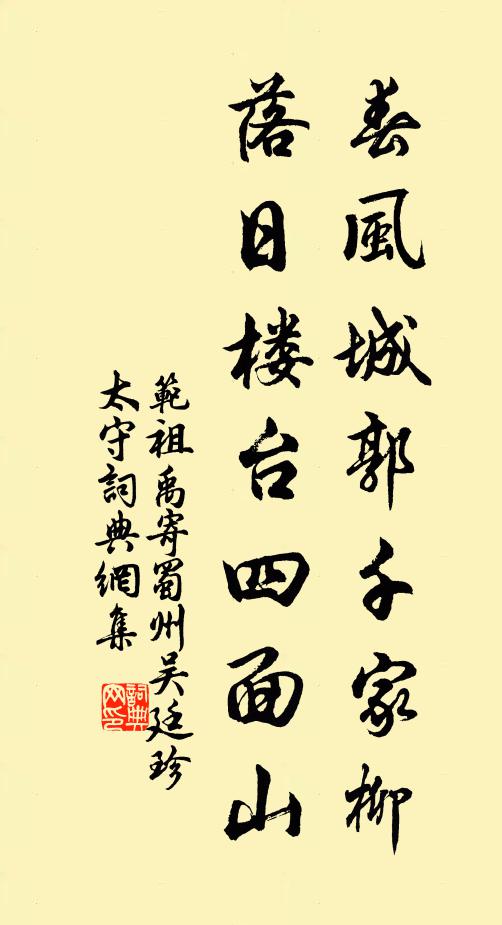 春風城郭千家柳
落日楼台四面山
範祖禹寄蜀州吴廷珍
太守詞典網集
詞典网印